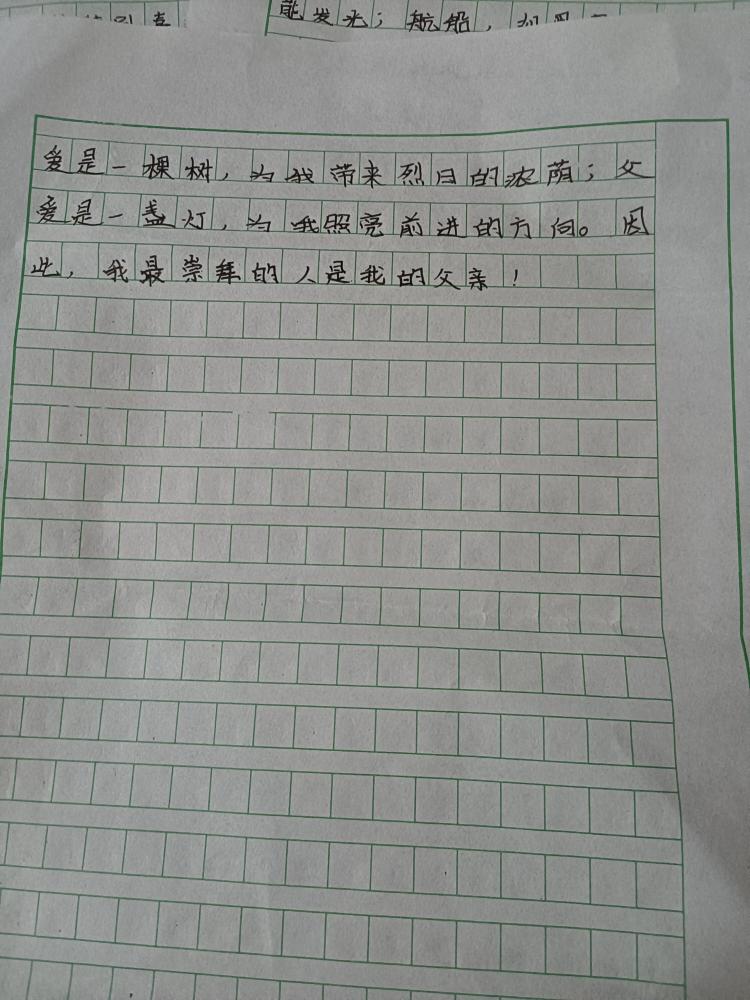 能发光；航船，
爱是一棵树，为我带来烈日的浓荫；父
爱是一盏灯，为我照亮前进的方向。因
此，我最崇拜的人是我的父亲！